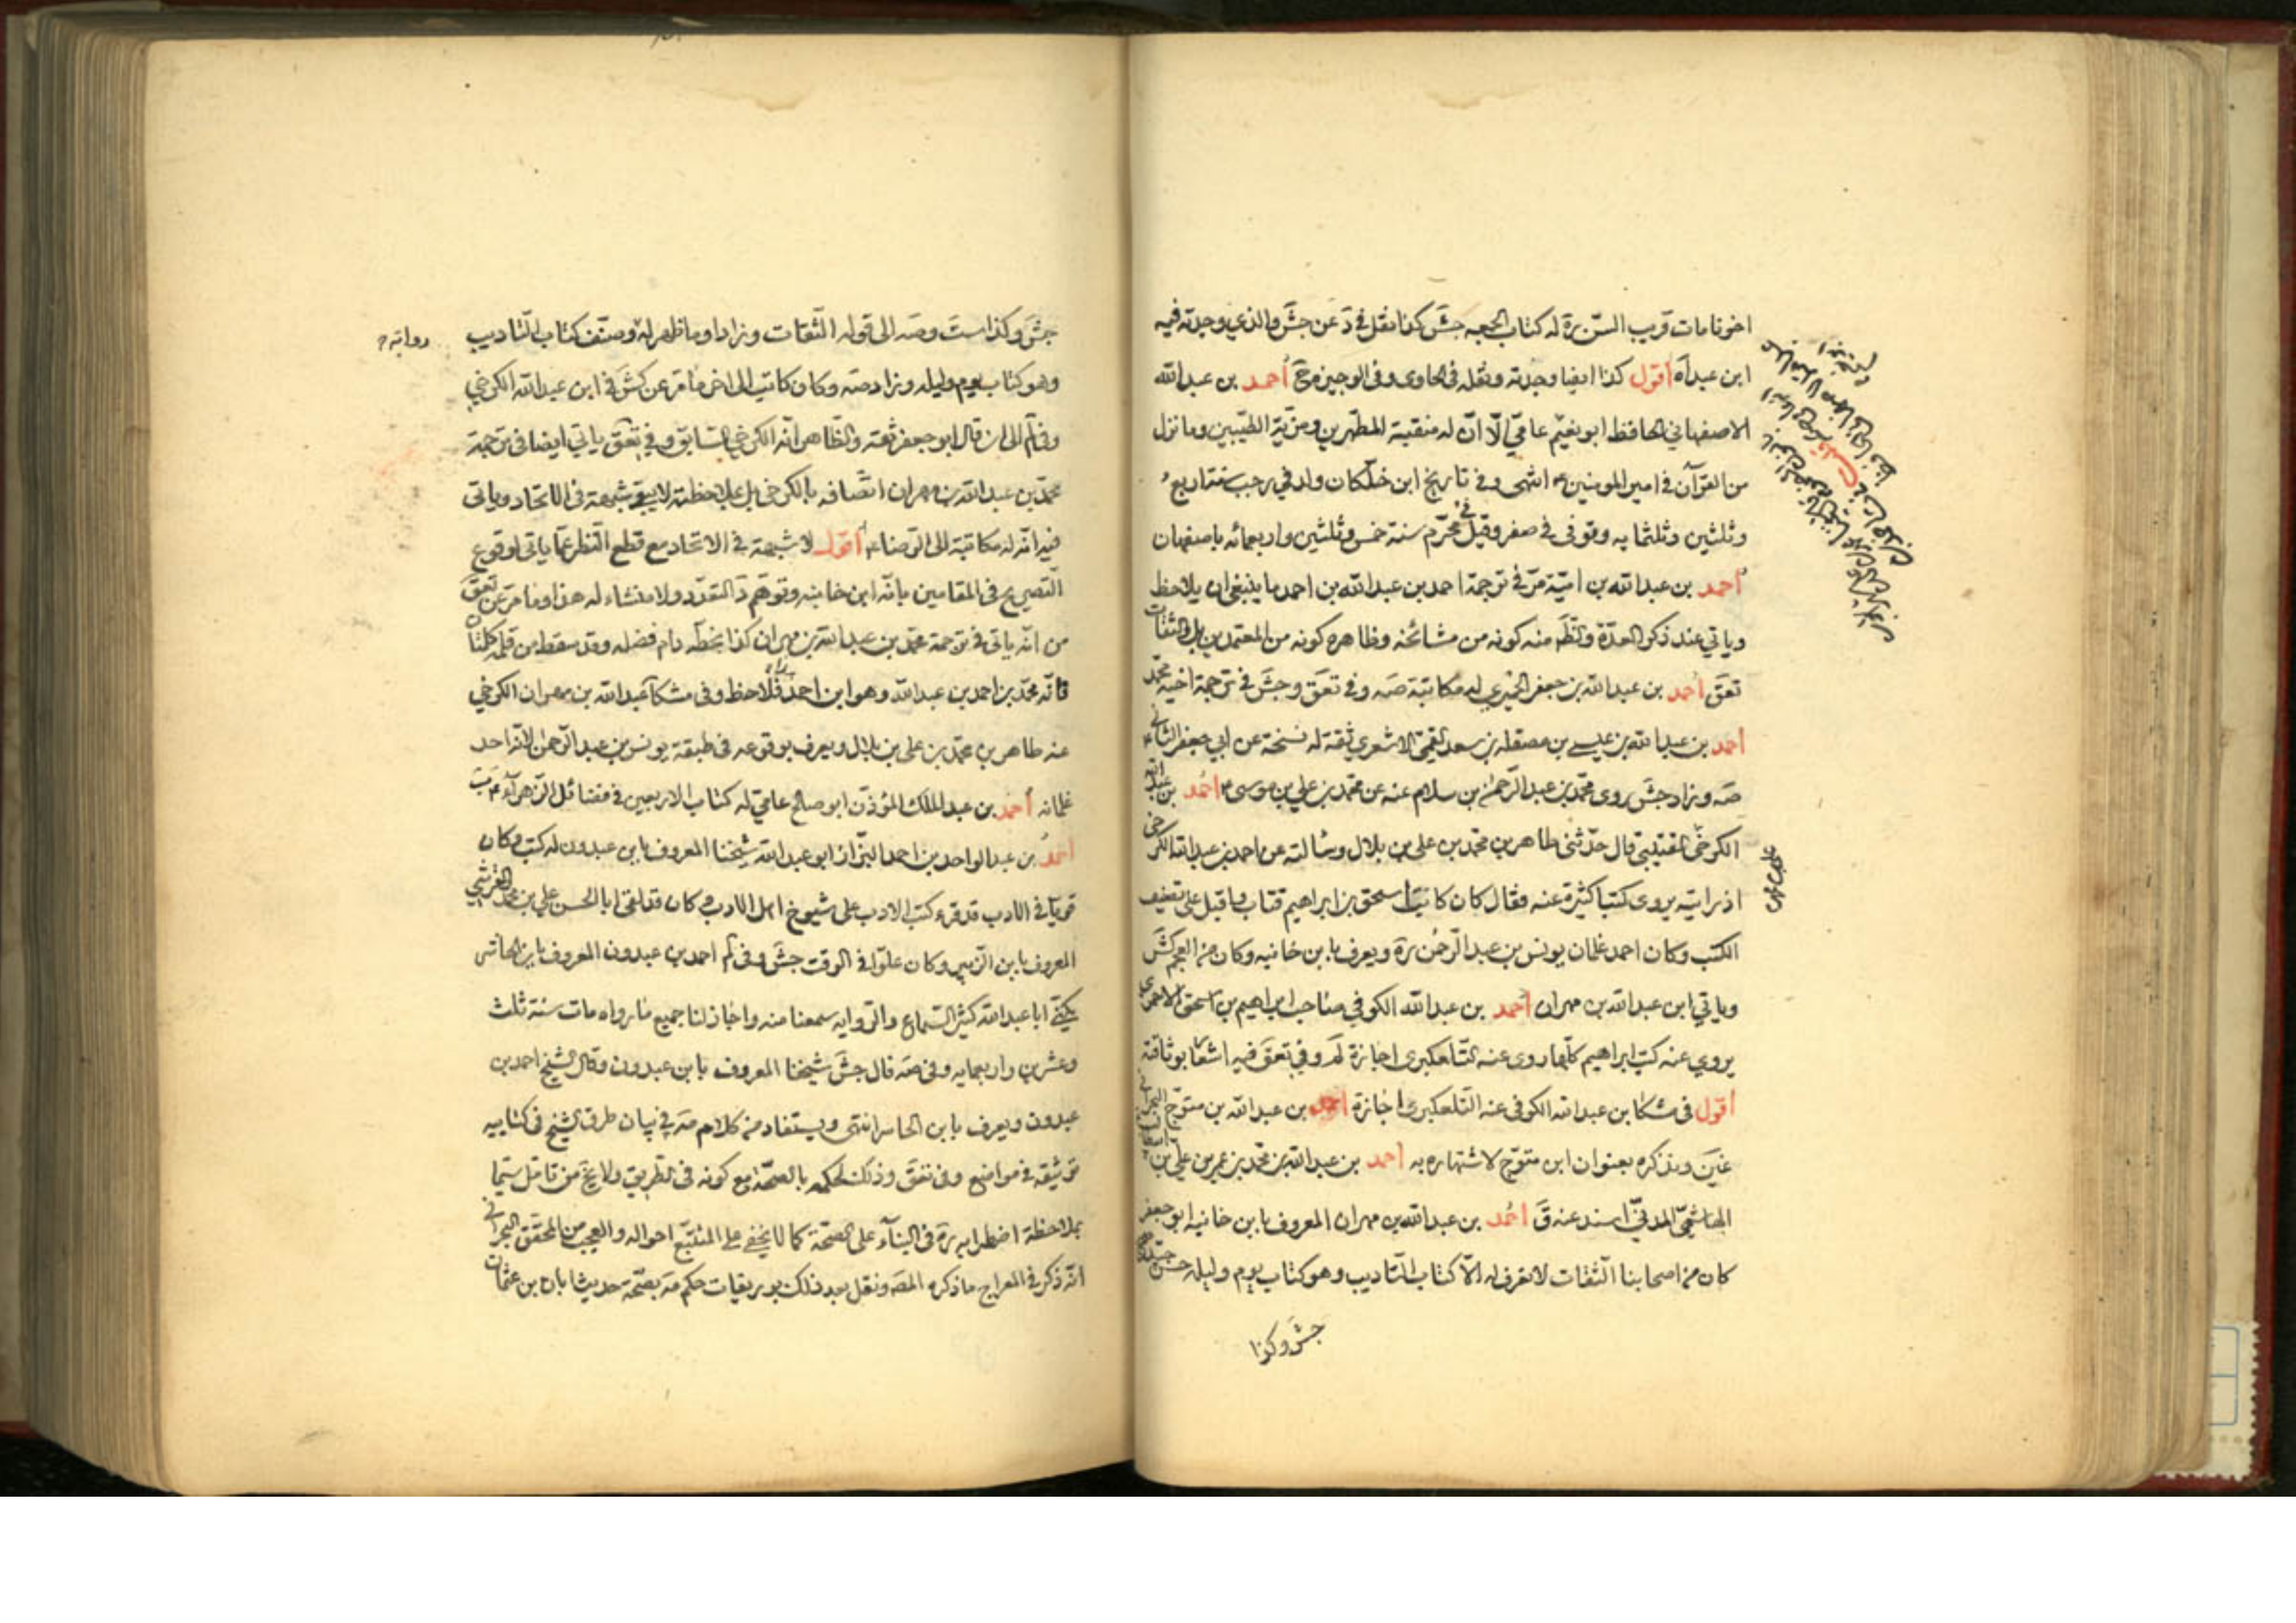 اخونا مات قريب السن ره له كتاب الجمعه جش كذا نقل في د عن جش والذي وجدته فيه
ابن عبد اه أقول كذا ايضا وجدته ونقله في الحاوى وفى الوجيز مح أحمد بن عبد الله
الاصفهاني الحافظ ابو نعيم عامي الّا انّ له منقبة المطهرين ومرتبة الطيبين وما نزل
من القرآن في امير المومنين ع انتهى وفى تاريخ ابن خلكان ولد في رجب سنة اربع
وثلثين وثلثمايه وتوفى في صفر وقيل في محرم سنة خمس وثلثين واربعمائه باصفهان
أحمد بن عبد الله بن اميّة مرّ في ترجمة احمد بن عبد الله بن احمد ما ينبغى ان يلاحظ
وياتي عند ذكر العدّة والظ منه كونه من مشائخه وظاهره كونه من المعتمدين بل والثقات
تعق أحمد بن عبد الله بن جعفر الحميرى له مكاتبة صه وفي تعق وجش في ترجمة اخيه محمد
أحمد بن عبد الله بن عيسى بن مصقله بن سعد القمي الاشعري ثقة له نسخة عن ابي جعفر الثاني ع
صه وزاد جش روى محمد بن عبد الرحمن بن سلام عنه عن محمد بن علي بن موسى ع أحمد بن عبد الله
الكرخي القتيبي قال حدثني طاهر بن محمد بن علي بن بلال وسالته عن احمد بن عبد الله الكرخى
اذ رايته يروى كتبا كثيرة عنه فقال كان كاتب اسحق بن ابراهيم فتاب واقبل على تصنيف
الكتب وكان احمد غلمان يونس بن عبد الرحمن ره ويعرف بابن خانبه وكان من العجم كش
وياتي ابن عبد الله بن مهران أحمد بن عبد الله الكوفي صاحب ابراهيم بن اسحق الاحمرى
يروي عنه كتب ابراهيم كلّها روى عنه التلعكبرى اجازة لم وفي تعق فيه اشعار بوثاقته
أقول في مشكا ابن عبد الله الكوفى عنه التلعكبرى اجازة أحمد بن عبد الله بن متوّج البحراني
غين ونذكره بعنوان ابن متوّج لاشتهاره به أحمد بن عبد الله بن محمد بن عمر بن علي بن
الهاشمي المدني اسند عنه ق أحمد بن عبد الله بن مهران المعروف بابن خانبه ابو جعفر
كان من اصحابنا الثقات لا نعرف له الّا كتاب التاديب وهو كتاب يوم وليله حسن جيد صحيح
جش وكذا
جش وكذا ست وصه الى قوله الثقات وزادا وما ظهر له وصنّف كتاب التاديب
رواية
وهو كتاب يوم وليله وزاد صه وكان كاتب الى اخر ما مر عن كش في ابن عبد الله الكرخي
وفى لم الى ان قال ابو جعفر ثقة والظاهر انه الكرخي السابق وفي تعق ياتي ايضا في ترجمة
محمد بن عبد الله بن مهران اتصافه بالكرخى بل بملاحظته لا يبقى شبهة في الاتحاد وياتي
فيه انه له مكاتبة الى الرضا ع أقول لا شبهة في الاتحاد مع قطع النظر عمّا ياتي لوقوع
التصريح في المقامين بانّه ابن خانبه وتوهّم د التعدّد ولا منشاء له هذا وما مر عن تعق
من انّه ياتى في ترجمة محمد بن عبد الله بن مهران كذا بخطه دام فضله وقد سقط من قلمه كلمتان
فانّه محمد بن احمد بن عبد الله وهو ابن احمد هذا فلاحظ وفى مشكا عبد الله بن مهران الكرخي
عنه طاهر بن محمد بن علي بن بلال ويعرف بوقوعه في طبقة يونس بن عبد الرحمن لانّه احد
غلمانه أحمد بن عبد الملك المؤذّن ابو صالح عامي له كتاب الاربعين في فضائل الزهراء ع ب
أحمد بن عبد الواحد بن احمد البزّاز ابو عبد الله شيخنا المعروف بابن عبدون له كتب وكان
قويّا في الادب قد قرء كتب الادب على شيوخ اهل الادب وكان قد لقى ابا الحسن علي بن محمد القرشي
المعروف بابن الزبير وكان علوّا في الوقت جش وفى لم احمد بن عبدون المعروف بابن الحاشر
يكنّى ابا عبد الله كثير السماع والروايه سمعنا منه واجاز لنا جميع ما رواه مات سنة ثلث
وعشرين واربعمايه وفى صه قال جش شيخنا المعروف بابن عبدون وقال الشيخ احمد بن
عبدون ويعرف بابن الحاشر انتهى ويستفاد من كلام مه في بيان طرق الشيخ في كتابيه
توثيقه في مواضع وفى تعق وذلك لحكمه بالصحّة مع كونه في الطريق ولا يخ من تامّل سيّما
بملاحظة اضطرابه ره في البناء على الصحّة كما لا يخفى على المتتبّع احواله والعجب من المحقق البحراني
انّه ذكر في المعراج ما ذكره المصه ونقل بعد ذلك بوريقات حكم مه بصحّة حديث ابان بن عثمان